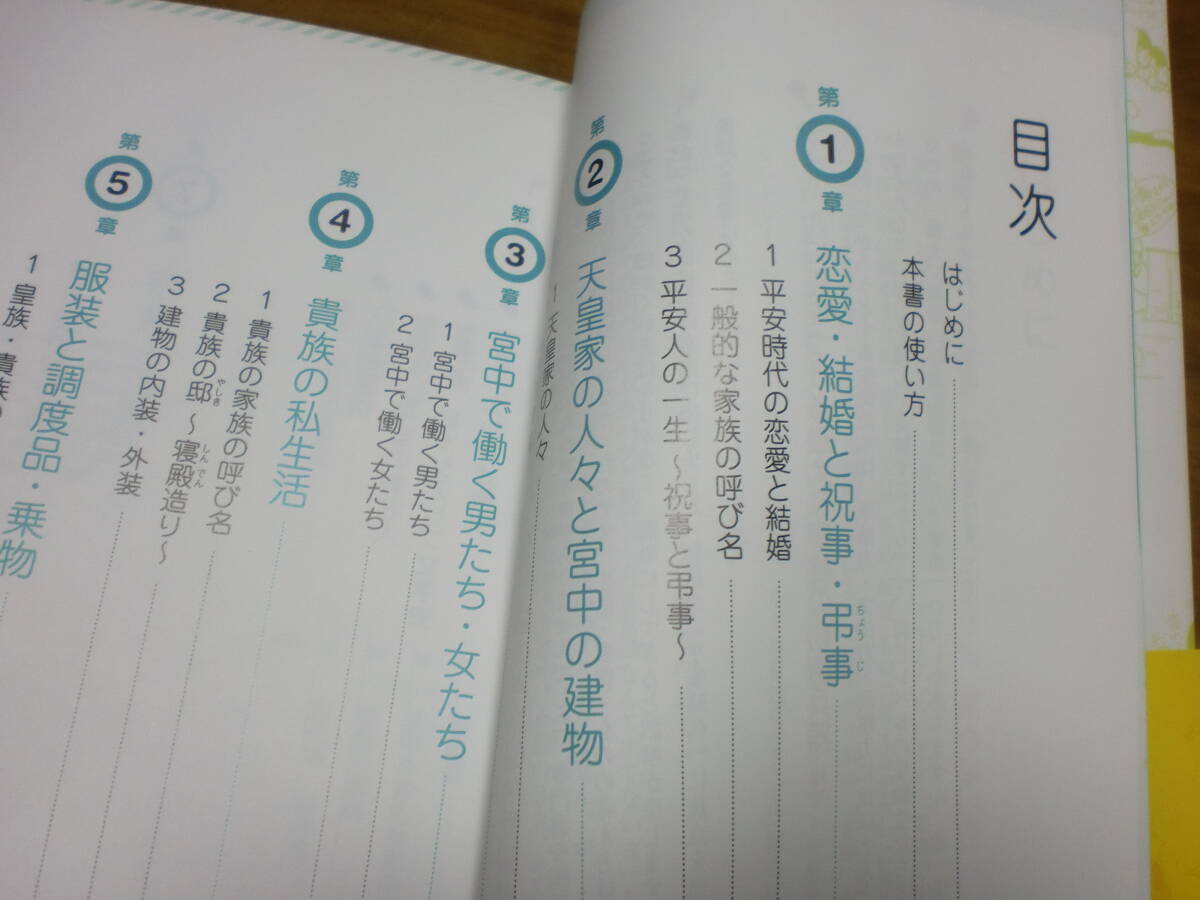 目次
はじめに
本書の使い方
第1章 恋愛・結婚と祝事・弔事
ちょうじ
1 平安時代の恋愛と結婚
2 一般的な家族の呼び名
3 平安人の一生 ～祝事と弔事～
第2章 天皇家の人々と宮中の建物
1 天皇家の人々
第3章 宮中で働く男たち・女たち
1 宮中で働く男たち
2 宮中で働く女たち
第4章 貴族の私生活
1 貴族の家族の呼び名
2 貴族の邸 ～寝殿造り～
やしき
しんでん
3 建物の内装・外装
第5章 服装と調度品・乗物
1 皇族・貴族